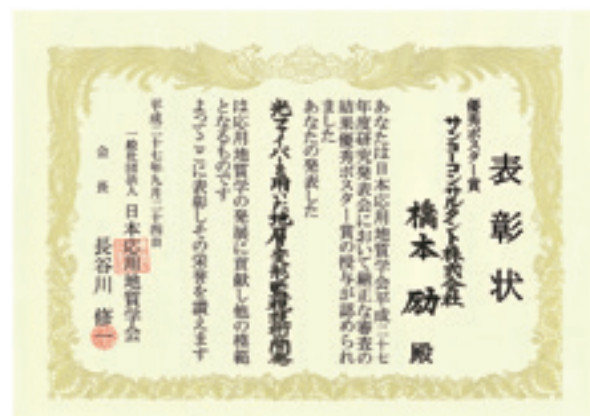 表彰状
優秀ポスター賞
サンヨーコンサルタント株式会社
橋本 励 殿
あなたは日本応用地質学会平成二十七
年度研究発表会において厳正な審査の
結果優秀ポスター賞の授与が認められ
ました
あなたの発表した
光ファイバを用いた地層変形監視技術開発
は応用地質学の発展に貢献し他の模範
となるものです
よってここに表彰しその栄誉を讃えます
平成二十七年九月二十四日
一般社団法人 日本応用地質学会
会長 長谷川 修一